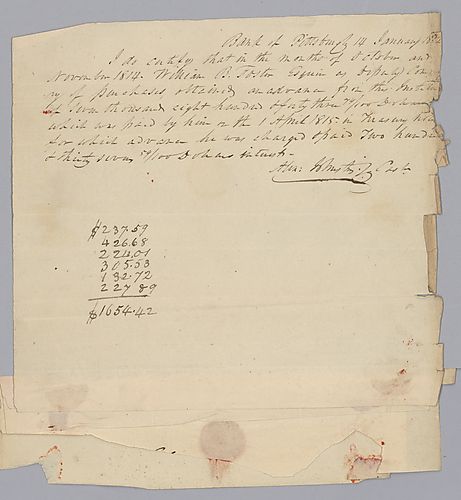 Bank of Pittsburgh 14 January
I do certify that in the months of October and
November 1814. William B. Foster Esquire as deputy
of purchases obtained an advance from this
of Seven thousand eight hundred & sixty three /100 Dollars
which was paid by him on the 1 April 1815 in Treasury
for which advance he was charged & paid Two hundred
& thirty seven /100 Dollars interest.
Alex: Johnston Jr Cash
$237.59
426.68
224.01
305.53
132.72
227 89
$1654.42